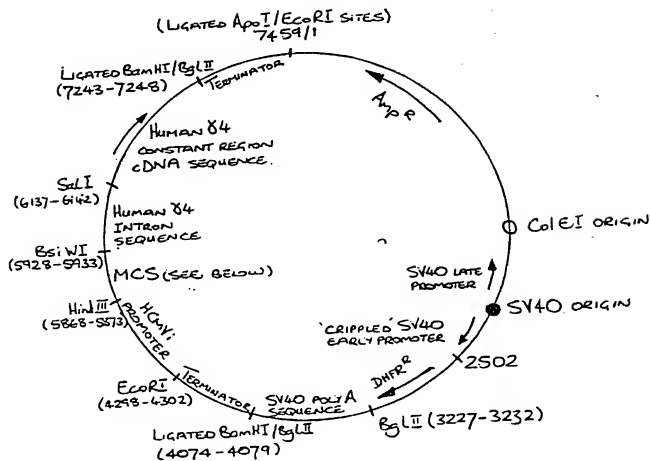 (LIGATED ApoI/EcoRI SITES)
7459/1
LIGATED BamHI/BglII
(7243-7248)
TERMINATOR
AmpR
HUMAN γ4
CONSTANT REGION
cDNA SEQUENCE.
SalI
(6137-6142)
HUMAN γ4
INTRON
SEQUENCE
ColEI ORIGIN
BsiWI
(5928-5933)
MCS (SEE BELOW)
SV40 LATE
PROMOTER
SV40 ORIGIN
HindIII
(5868-5573)
HCMVi
PROMOTER
'CRIPPLED' SV40
EARLY PROMOTER
2502
DHFRR
EcoRI
(4298-4302)
TERMINATOR
SV40 POLY A
SEQUENCE
BglII (3227-3232)
LIGATED BamHI/BglII
(4074-4079)